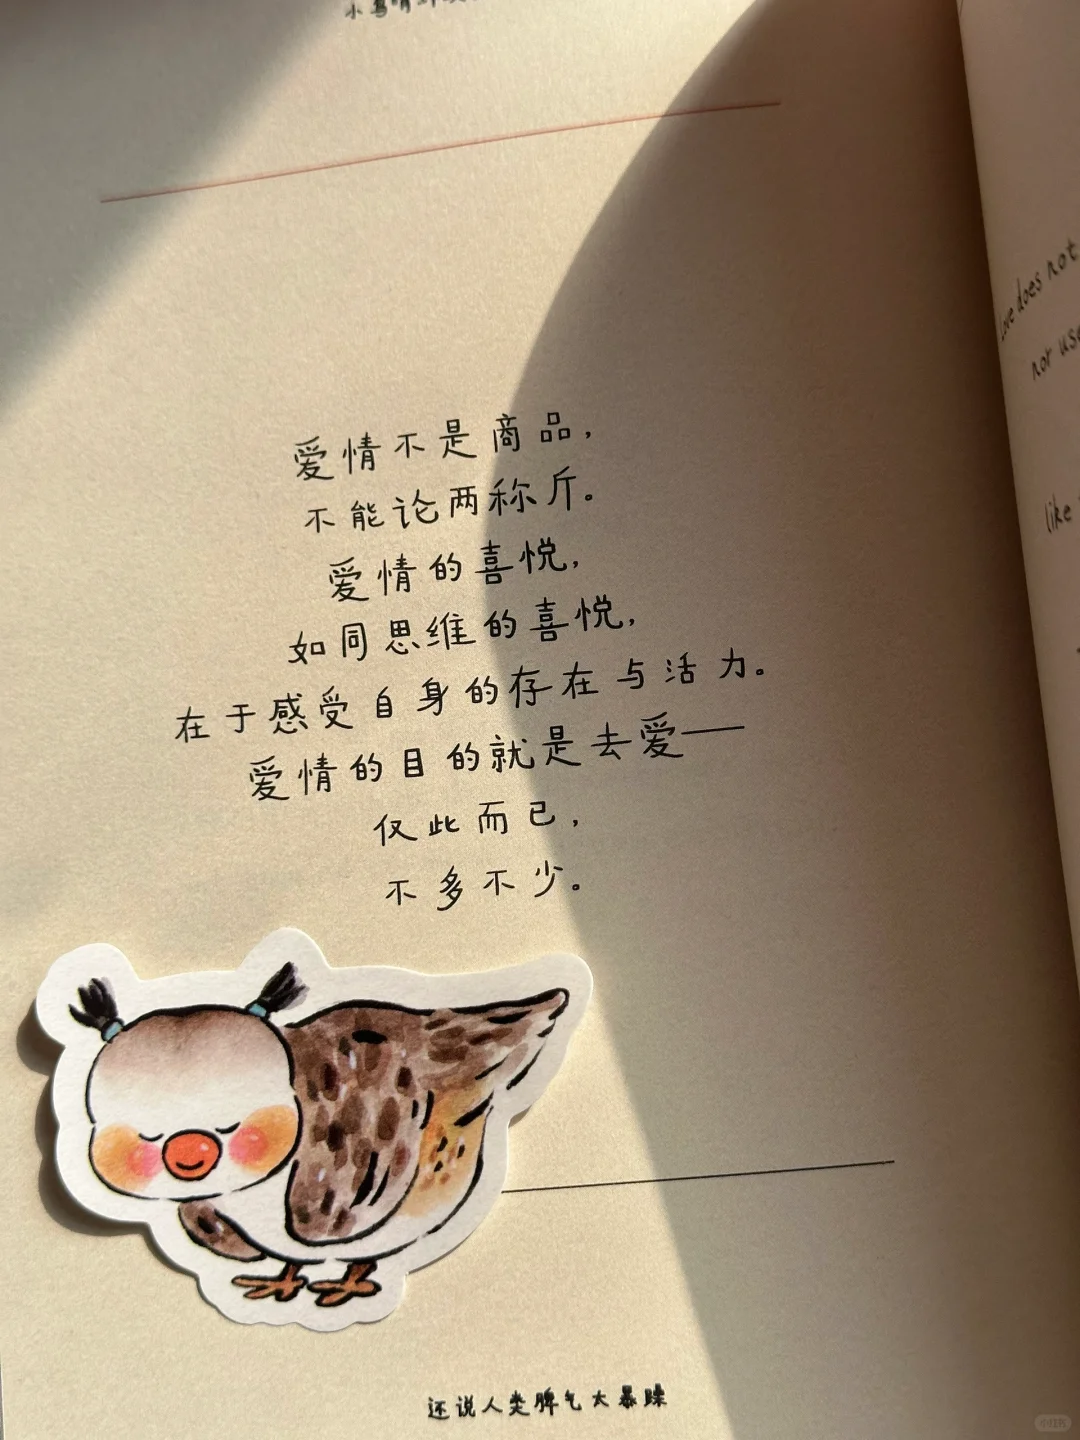 爱情不是商品，
不能论两称斤。
爱情的喜悦，
如同思维的喜悦，
在于感受自身的存在与活力。
爱情的目的就是去爱——
仅此而已，
不多不少。
还说人类脾气太暴躁
love does not
nor use
like